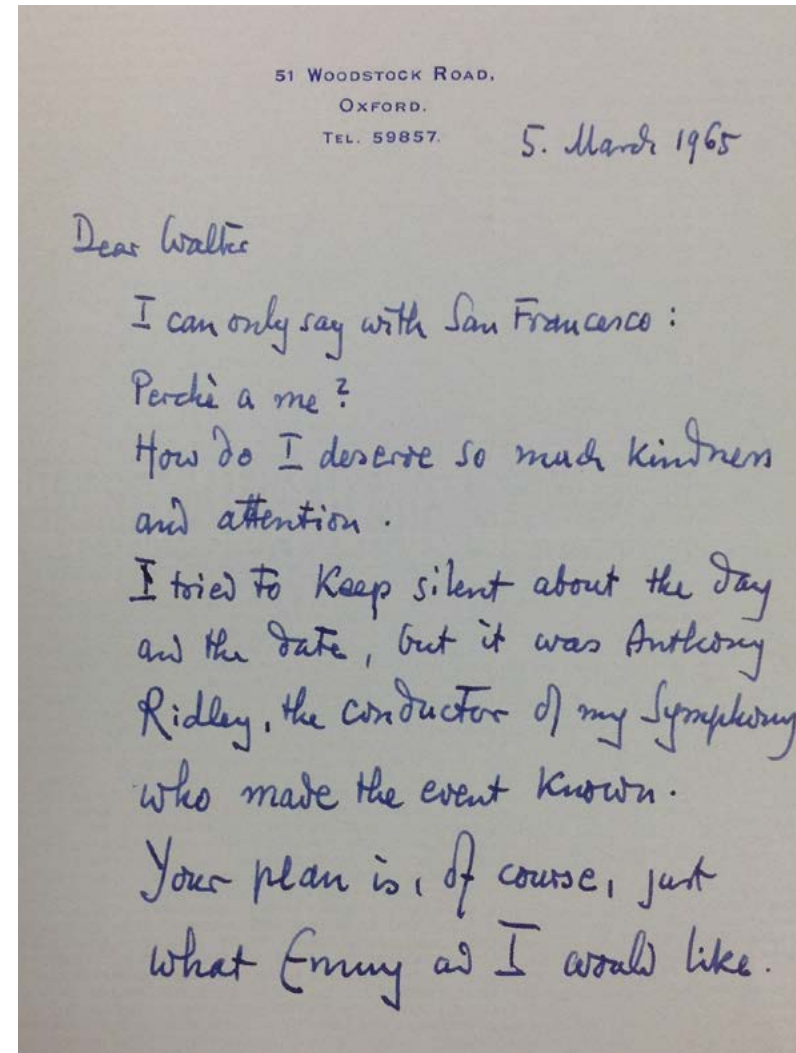 51 WOODSTOCK ROAD,
OXFORD.
TEL. 59857.
5. March 1965
Dear Walter
I can only say with San Francesco :
Perchè a me ?
How do I deserve so much kindness
and attention .
I tried to keep silent about the day
and the date, but it was Anthony
Ridley, the conductor of my Symphony
who made the event known.
Your plan is, of course, just
what Emmy ad I would like.